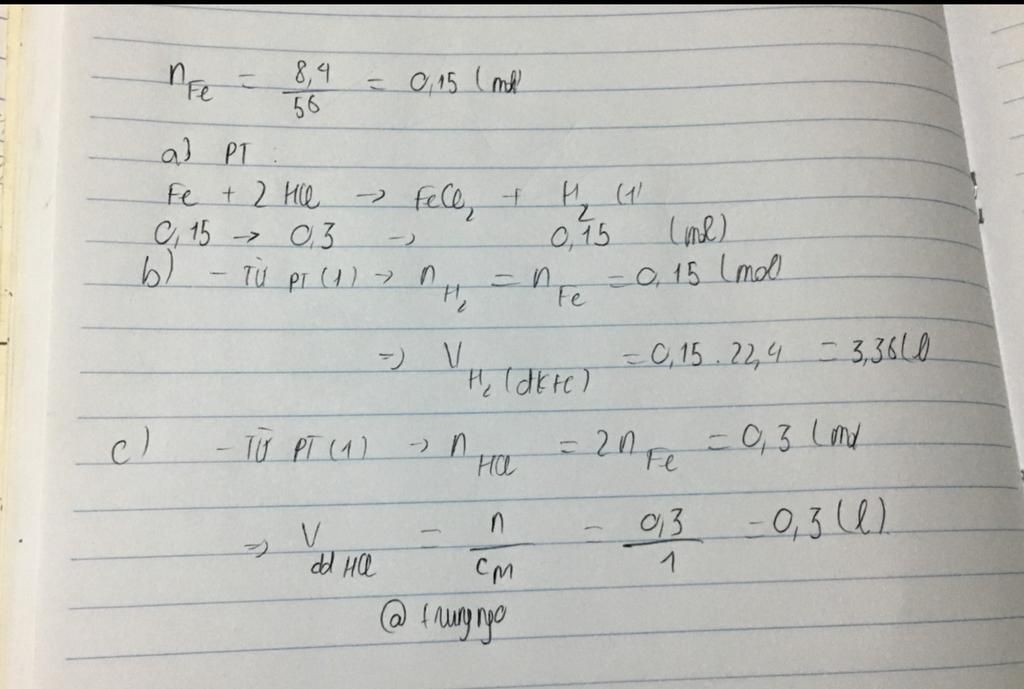 n Fe = 8,4/56 = 0,15 (mol
a) PT :
Fe + 2 HCl -> FeCl2 + H2 (1)
0,15 -> 0,3 -> 0,15 (mol)
b) - TỪ PT (1) -> n H2 = n Fe = 0,15 (mol)
=> V H2 (đktc) = 0,15 . 22,4 = 3,36 (l)
c) - TỪ PT (1) -> n HCl = 2 n Fe = 0,3 (mol
=> V dd HCl = n/CM = 0,3/1 = 0,3 (l).
@ trungngo